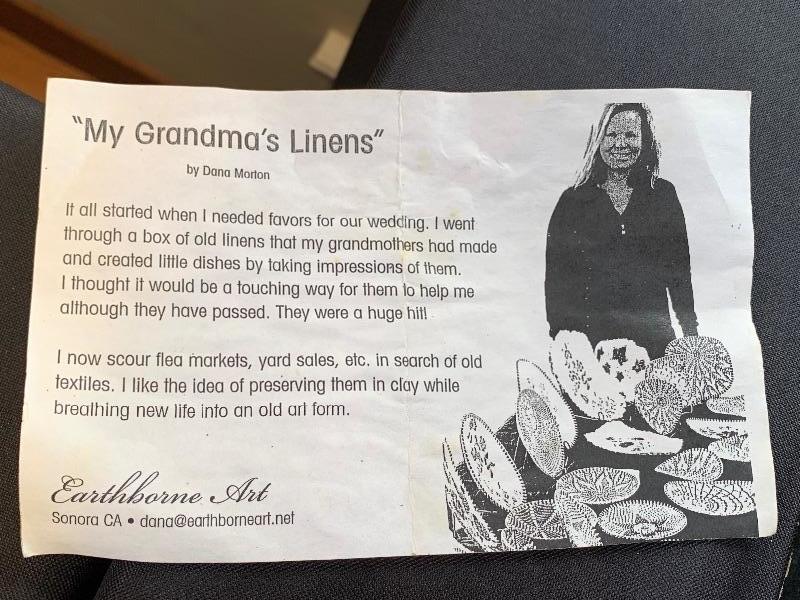 "My Grandma's Linens"
by Dana Morton
It all started when I needed favors for our wedding. I went
through a box of old linens that my grandmothers had made
and created little dishes by taking impressions of them.
I thought it would be a touching way for them to help me
although they have passed. They were a huge hit!
I now scour flea markets, yard sales, etc. in search of old
textiles. I like the idea of preserving them in clay while
breathing new life into an old art form.
Earthborne Art
Sonora CA • dana@earthborneart.net